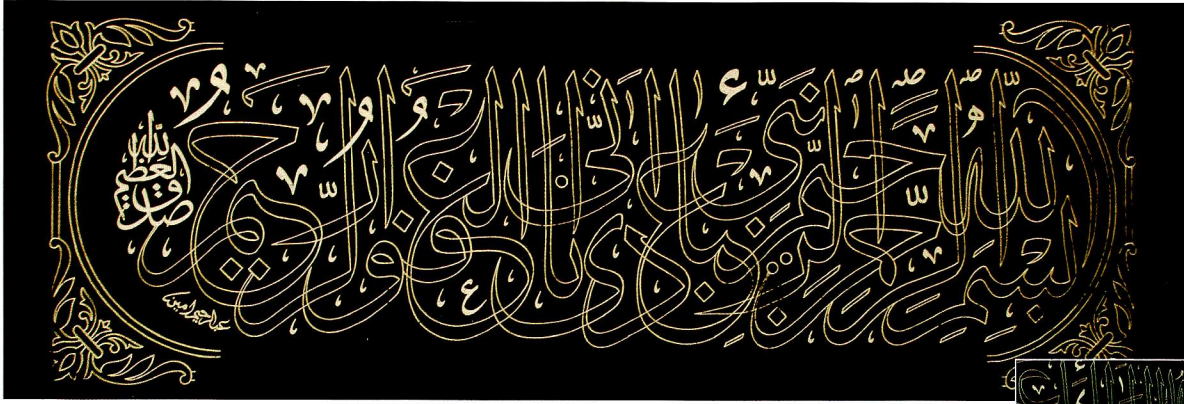 بسم الله الرحمن الرحيم نبئ عبادي أني أنا الغفور الرحيم
صدق الله العظيم